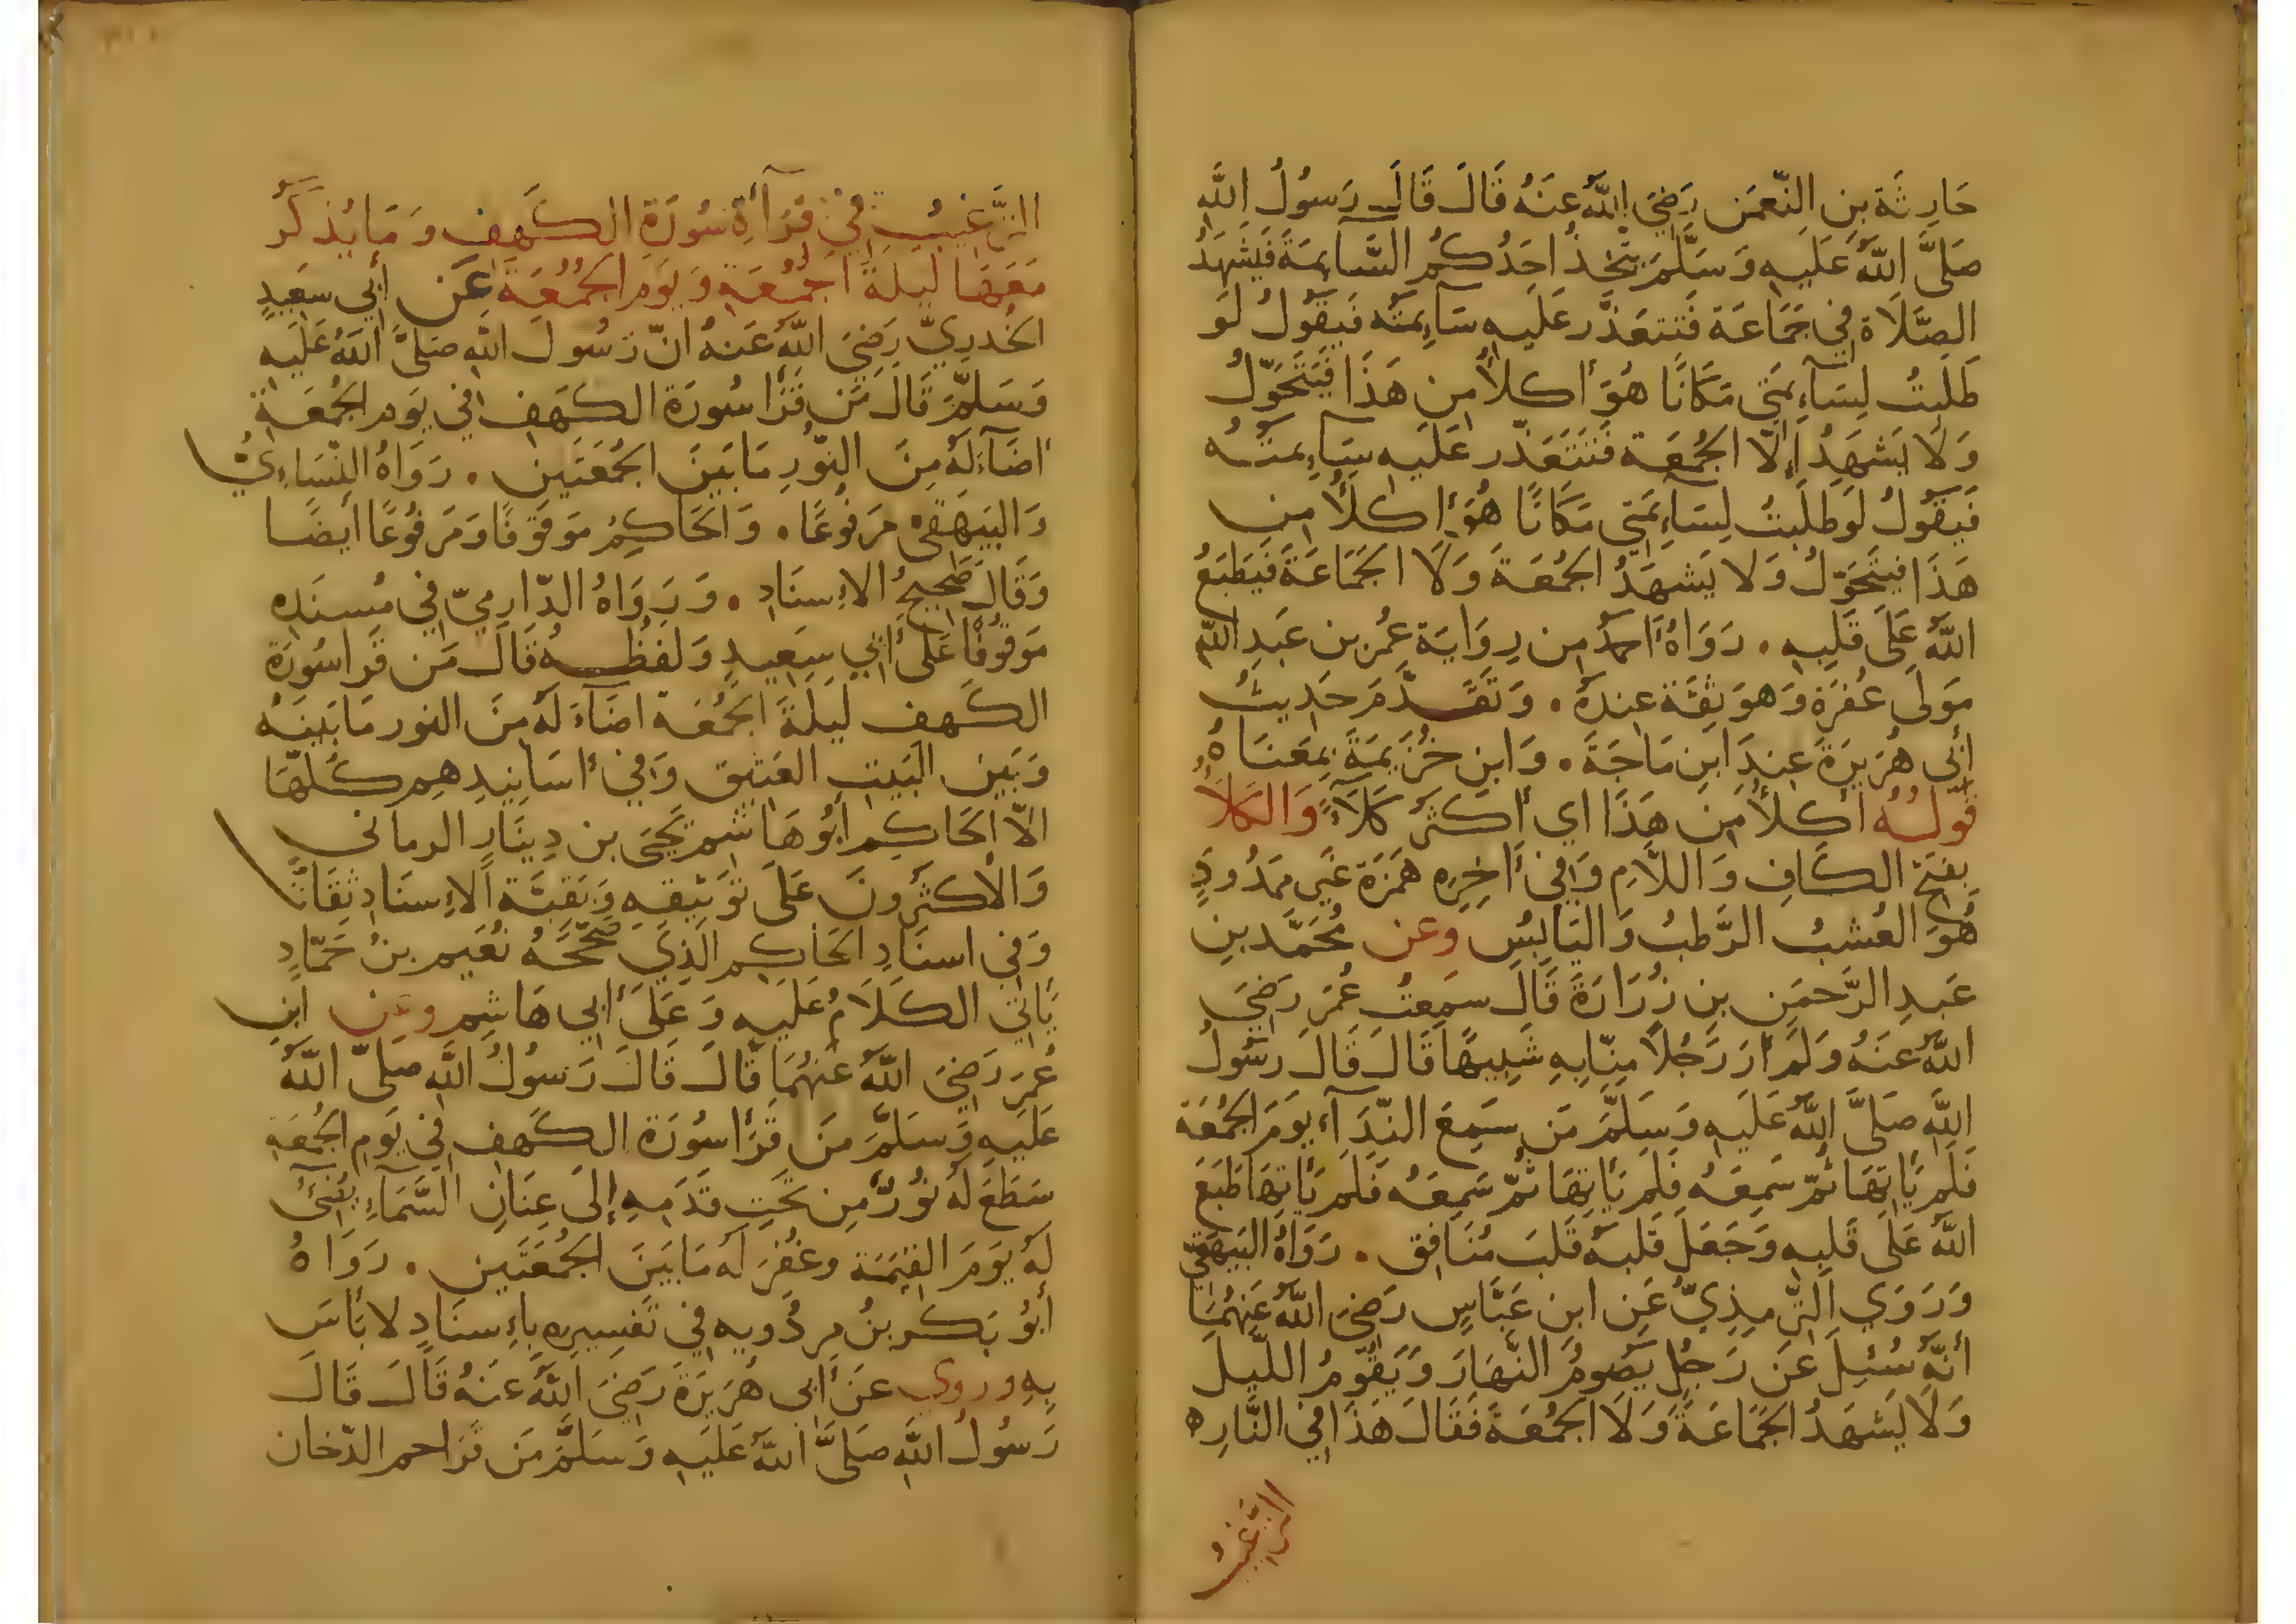 حَارِثَة بنِ النّعمَن رَضِيَ اللّٰهُ عَنهُ قَالَ قَالَ رَسُولُ اللّٰهِ
صَلَّى اللّٰهُ عَلَيهِ وَسَلَّمَ يَتَّخِذُ اَحَدُكُمُ السَّآيِمَةَ فَيَشهَدُ
الصَّلَاةَ فِي جَمَاعَة فَتَتعَذَّر عَلَيهِ سَآيِمَتُه فَيَقُولُ لَو
طَلَبتُ لِسَآيِمَتِي مَكَانًا هُوَ أَكلأُ مِن هَذَا فَيَتَحَوَّلُ
وَلَا يَشهَدُ إِلّا الجُمُعَة فَتَتَعَذّر عَلَيهِ سَآيِمَتُه
فَيَقُولُ لَو طَلَبتُ لِسَآيِمَتِي مَكَانًا هُوَ أَكلأُ مِن
هَذَا فَيَتَحَوّلُ وَلا يَشهَدُ الجُمُعَةَ وَلَا الجَمَاعَةَ فَيَطبَعُ
اللّٰهُ عَلَى قَلبِهِ . رَوَاهُ أَحمَدُ مِن رِوَايَة عُمَر بن عَبدِ اللّٰهِ
مَولَى غُفرَة وَهوَ ثِقَة عِندَهُ . وَتَقَدَّمَ حَدِيثُ
أَبِي هُرَيرَةَ عِندَ ابنِ مَاجَةَ . وَابنِ خُزَيمَةَ بِمَعنَاهُ
قَولُهُ أَكلأُ مِن هَذَا اي أَكثَرُ كَلَأً وَالكَلأُ
بِفَتحِ الكَافِ وَاللّامِ وَفِي أَخِرِهِ هَمزَة غَير مَمدُودٍ
هُوَ العُشبُ الرَّطبُ وَاليَابِسُ وعن مُحَمَّد بنِ
عَبدِ الرَّحمَنِ بنِ زُرَارَةَ قَالَ سَمِعتُ عُمَرَ رَضِيَ
اللّٰهُ عَنهُ وَلَم أَرَ رَجُلًا مِنّا بِهِ شَبِيهًا قَالَ قَالَ رَسُولُ
اللّٰهِ صَلَّى اللّٰهُ عَلَيهِ وَسَلَّمَ مَن سَمِعَ النِّدَآء يَومَ الجُمُعَة
فَلَم يَأتِهَا ثُمّ سَمِعَهُ فَلَم يَأتِهَا ثُمّ سَمِعَهُ فَلَم يَأتِهَا طَبَعَ
اللّٰهُ عَلَى قَلبِهِ وَجَعَلَ قَلبَهُ قَلبَ مُنَافِق . رَوَاهُ البَيهَقِيّ
وَرَوَي التِّرمِذِيُّ عَنِ ابن عَبَّاسٍ رَضِيَ اللّٰهُ عَنهُمَا
أَنَّهُ سُئِلَ عَن رَجُلٍ يَصُومُ النَّهَارَ وَيَقُومُ اللَّيلَ
وَلَا يَشهَدُ الجَمَاعَةَ وَلَا الجُمُعَةَ فَقَالَ هَذَا فِي النَّارِ ه
الترغيبُ
التَّرغِيبُ فِي قِرَآةِ سُورَةِ الكَهفِ وَمَا يُذكَرُ
مَعَهَا لَيلَةَ الجُمُعَةِ وَيَومَ الجُمُعَةِ عَن أَبِي سَعِيدٍ
الخُدرِيّ رَضِيَ اللّٰهُ عَنهُ انّ رَسُولَ اللّٰهِ صَلَّى اللّٰهُ عَلَيهِ
وَسَلَّمَ قَالَ مَن قَرَا سُورَة الكَهفِ فِي يَومِ الجُمُعَةِ
اضَآءَ لَهُ مِنَ النُّورِ مَا بَينَ الجُمُعَتَينِ . رَوَاهُ النَّسَاءِيُّ
وَالبَيهَقِي مَرفُوعًا . وَالحَاكِمُ مَوقُوفًا وَمَرفُوعًا أَيضًا
وَقَالَ صَحِيحُ الاِسنَادِ . وَرَوَاهُ الدّارِمِيّ فِي مُسنَدِهِ
مَوقُوفًا عَلَى أَبِي سَعِيدٍ وَلَفظُهُ قَالَ مَن قَرَا سُورَة
الكَهفِ لَيلَةَ الجُمُعَة اضَآءَ لَهُ مِنَ النور مَا بَينَهُ
وَبَينَ البَيتِ العَتِيقِ وَفِي أَسَانِيدِهِم كُلّهَا
الّا الحَاكِم أَبُو هَاشم يَحيَى بن دِينَارٍ الرماني
وَالأَكثَرُونَ عَلَى تَوثِيقِهِ وَبَقِيَّة الاِسنَادِ ثِقَات
وَفِي اسنَادِ الحَاكِم الذِي صَحَّحَهُ نُعَيم بنُ حَمّادٍ
يَاتِي الكَلَامُ عَلَيهِ وَعَلَى أَبِي هَاشِم وعن ابنِ
عُمَرَ رَضِيَ اللّٰهُ عَنهُمَا قَالَ قَالَ رَسُولُ اللّٰهِ صَلَّى اللّٰهُ
عَلَيهِ وَسَلَّمَ مَن قَرَأَ سُورَة الكَهفِ فِي يَومِ الجُمُعَةِ
سَطَعَ لَهُ نُورٌ مِن تَحتِ قَدَمِهِ إِلَى عِنَانِ السَّمَآءِ يُضِيءُ
لَهُ يَومَ القِيَمَة وغُفِرَ لَه مَا بَينَ الجُمُعَتَينِ . رَوَاهُ
أَبُو بَكر بنُ مردُويه فِي تَفسِيرِهِ بِاءِسنَادٍ لا بَأسَ
بِهِ وروي عَن أَبِي هُرَيرَةَ رَضِيَ اللّٰهُ عَنهُ قَالَ قَالَ
رَسُولُ اللّٰهِ صَلَّى اللّٰهُ عَلَيهِ وَسَلَّمَ مَن قَرَا حم الدّخان